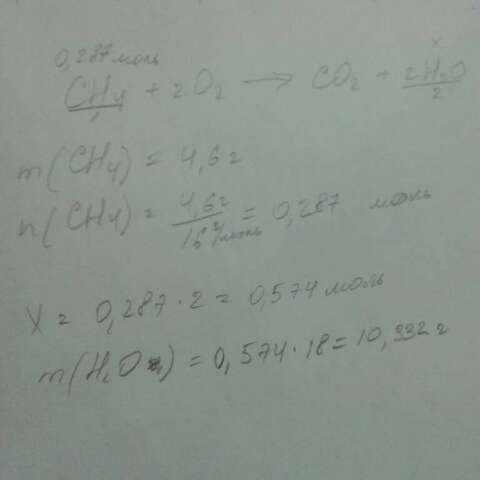 0,287 моль x
CH4 + 2O2 → CO2 + 2H2O
1 2
m(CH4) = 4,6 г
n(CH4) = 4,6г / 16 г/моль = 0,287 моль
X = 0,287 · 2 = 0,574 моль
m(H2O) = 0,574 · 18 = 10,332 г